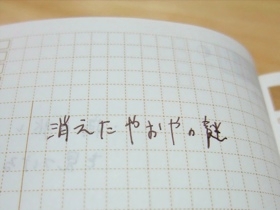 消えたやおやの謎